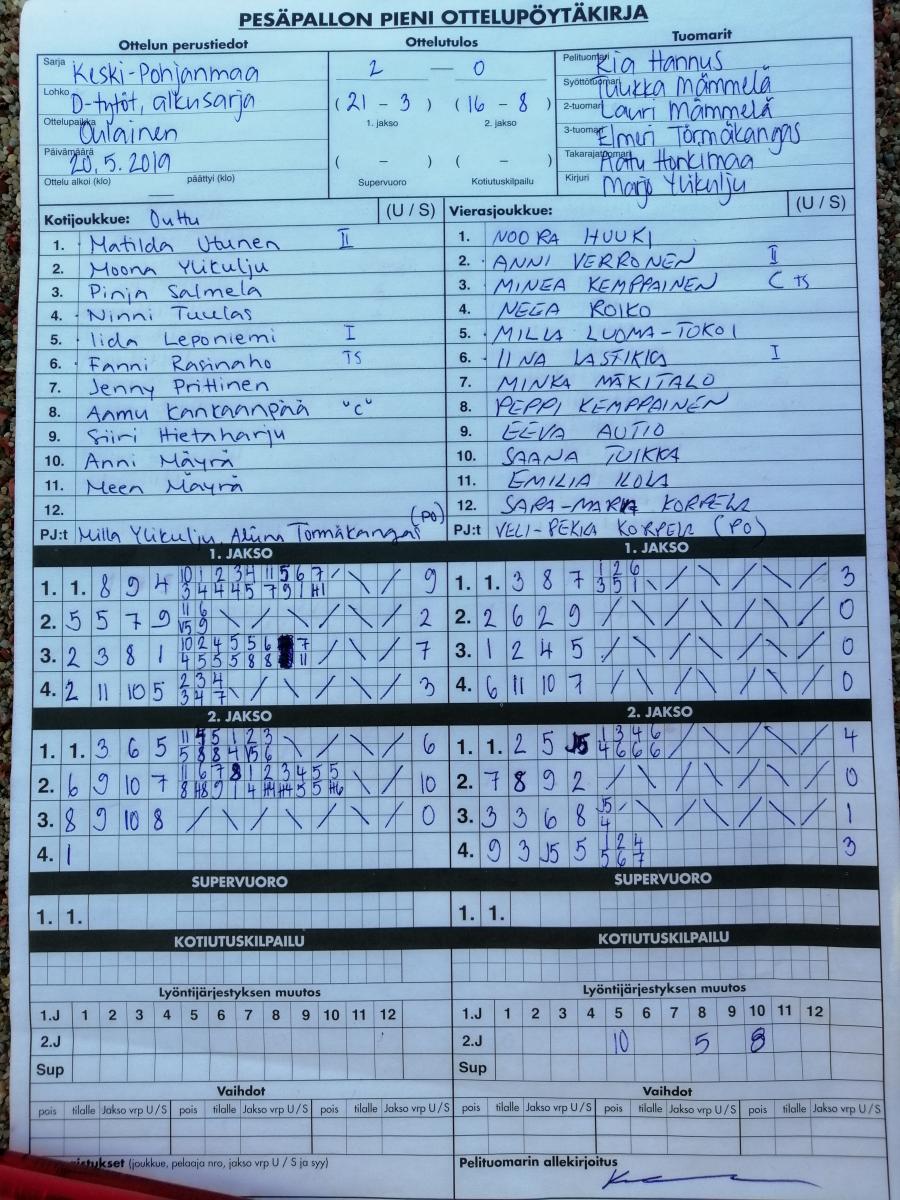 PESÄPALLON PIENI OTTELUPÖYTÄKIRJA
Ottelun perustiedot
Ottelutulos
Tuomarit
Sarja Keski-Pohjanmaa
Lohko D-tytöt, alkusarja
Ottelupaikka Oulainen
Päivämäärä 20.5.2019
Ottelu alkoi (klo) päättyi (klo)
2 — 0
(21 - 3) (16 - 8)
1. jakso 2. jakso
( - ) ( - )
Supervuoro Kotiutuskilpailu
Pelituomari Kia Hannus
Syöttötuomari Tuukka Mämmelä
2-tuomari Lauri Mämmelä
3-tuomari Elmeri Törmäkangas
Takarajatuomari Aatu Honkimaa
Kirjuri Marjo Ylikulju
Kotijoukkue: OuHu (U / S)
1. Matilda Utunen II
2. Moona Ylikulju
3. Pinja Salmela
4. Ninni Tuulas
5. Iida Leponiemi I
6. Fanni Rasinaho TS
7. Jenny Prittinen
8. Aamu Kankaanpää "C"
9. Siiri Hietaharju
10. Anni Mäyrä
11. Meea Mäyrä
12.
PJ:t Milla Ylikulju, Törmäkangas (PO)
Vierasjoukkue: (U / S)
1. NOORA HUUKI
2. ANNI VERRONEN II
3. MINEA KEMPPAINEN C TS
4. NEEA ROIKO
5. MILLA LUOMA-TOKOI
6. IINA LASTIKKA I
7. MINKA MÄKITALO
8. PEPPI KEMPPAINEN
9. EEVA AUTIO
10. SAANA TUIKKA
11. EMILIA ILOLA
12. SARA-MARIA KORPELA
PJ:t VELI-PEKKA KORPELA (PO)
1. JAKSO
1. 1. 8 9 4 10 1 2 3 4 11 5 6 7 9
3 4 4 4 5 7 9 1
2. 5 5 7 9 11 6 2
J5 9
3. 2 3 8 1 10 2 4 5 5 6 7 7
4 5 5 5 8 8 11
4. 2 11 10 5 2 3 4 3
3 4 7
1. JAKSO
1. 1. 3 8 7 1 2 6 3
3 5 1
2. 2 6 2 9 0
3. 1 2 4 5 0
4. 6 11 10 7 0
2. JAKSO
1. 1. 3 6 5 11 5 5 1 2 3 6
5 8 8 4 J5 6
2. 6 9 10 7 11 6 7 8 1 2 3 4 5 5 10
8 9 1 4 5 5
3. 8 9 10 8 0
4. 1
2. JAKSO
1. 1. 2 5 J5 1 3 4 6 4
4 6 6 6
2. 7 8 9 2 0
3. 3 3 6 8 J5 1
4
4. 9 3 J5 5 1 2 4 3
5 6 7
SUPERVUORO
1. 1.
SUPERVUORO
1. 1.
KOTIUTUSKILPAILU
KOTIUTUSKILPAILU
Lyöntijärjestyksen muutos
1.J 1 2 3 4 5 6 7 8 9 10 11 12
2.J
Sup
Lyöntijärjestyksen muutos
1.J 1 2 3 4 5 6 7 8 9 10 11 12
2.J 10 5 8
Sup
Vaihdot
pois tilalle Jakso vrp U / S pois tilalle Jakso vrp U / S pois tilalle Jakso vrp U / S
Vaihdot
pois tilalle Jakso vrp U / S pois tilalle Jakso vrp U / S pois tilalle Jakso vrp U / S
(joukkue, pelaaja nro, jakso vrp U / S ja syy)
Pelituomarin allekirjoitus